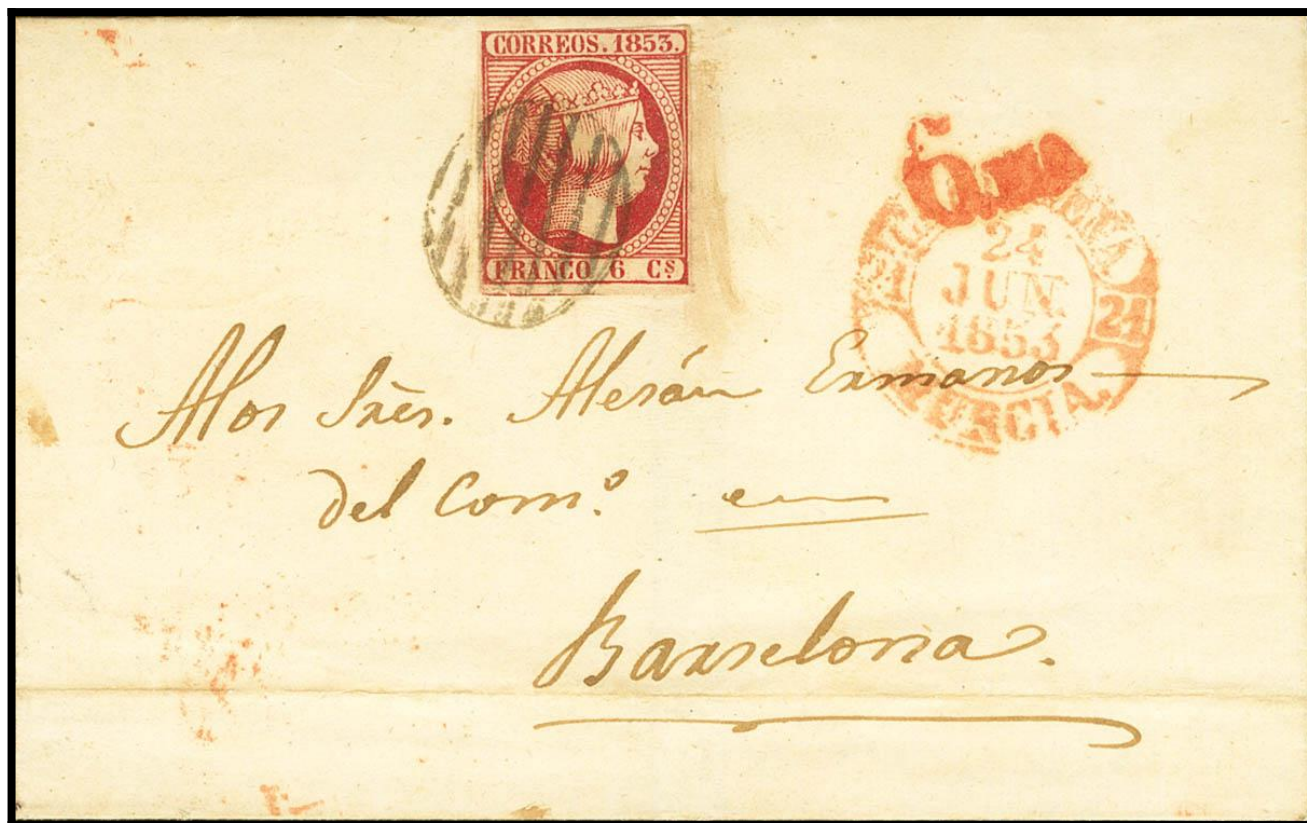 CORREOS. 1853.
FRANCO 6 Cs
6 Rs
24
JUN.
1853
24
MURCIA.
Alos Sres. Alesán Ermanos
del Com.º en
Barselona.